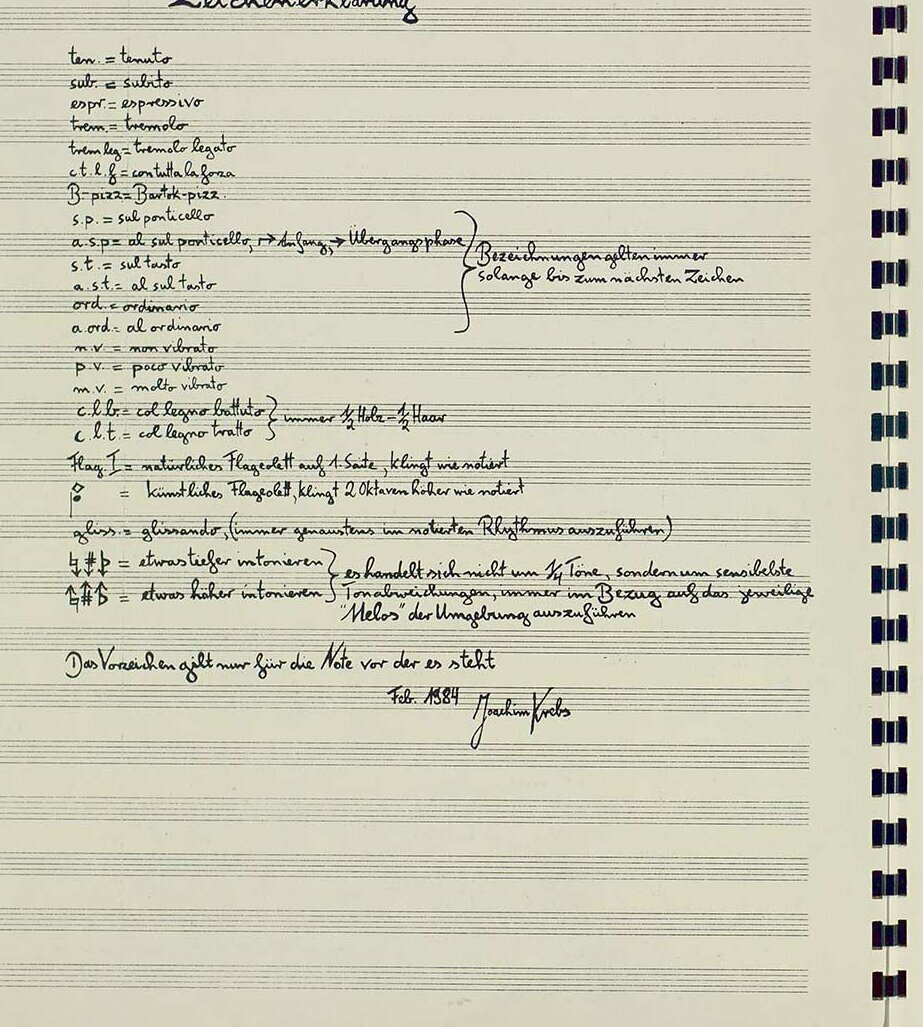 Zeichenerklärung
ten. = tenuto
sub. = subito
espr. = espressivo
trem. = tremolo
trem leg = tremolo legato
c.t.l.f = con tutta la forza
B.-pizz = Bartok-pizz.
s.p. = sul ponticello
a.s.p = al sul ponticello, ↦ Anfang, → Übergangsphase
s.t. = sul tasto
a.s.t. = al sul tasto
ord. = ordinario
a.ord. = al ordinario
Bezeichnungen gelten immer
solange bis zum nächsten Zeichen
n.v. = non vibrato
p.v. = poco vibrato
m.v. = molto vibrato
c.l.b. = col legno battuto
c.l.t. = col legno tratto
immer ½ Holz – ½ Haar
Flag. I = natürliches Flageolett auf 1. Saite, klingt wie notiert
= künstliches Flageolett, klingt 2 Oktaven höher wie notiert
gliss. = glissando, (immer genaustens im notierten Rhythmus auszuführen)
= etwas tiefer intonieren
= etwas höher intonieren
es handelt sich nicht um ¼ Töne, sondern um sensibelste
Tonabweichungen, immer im Bezug auf das jeweilige
"Melos" der Umgebung auszuführen
Das Vorzeichen gilt nur für die Note vor der es steht
Feb. 1984 Joachim Krebs